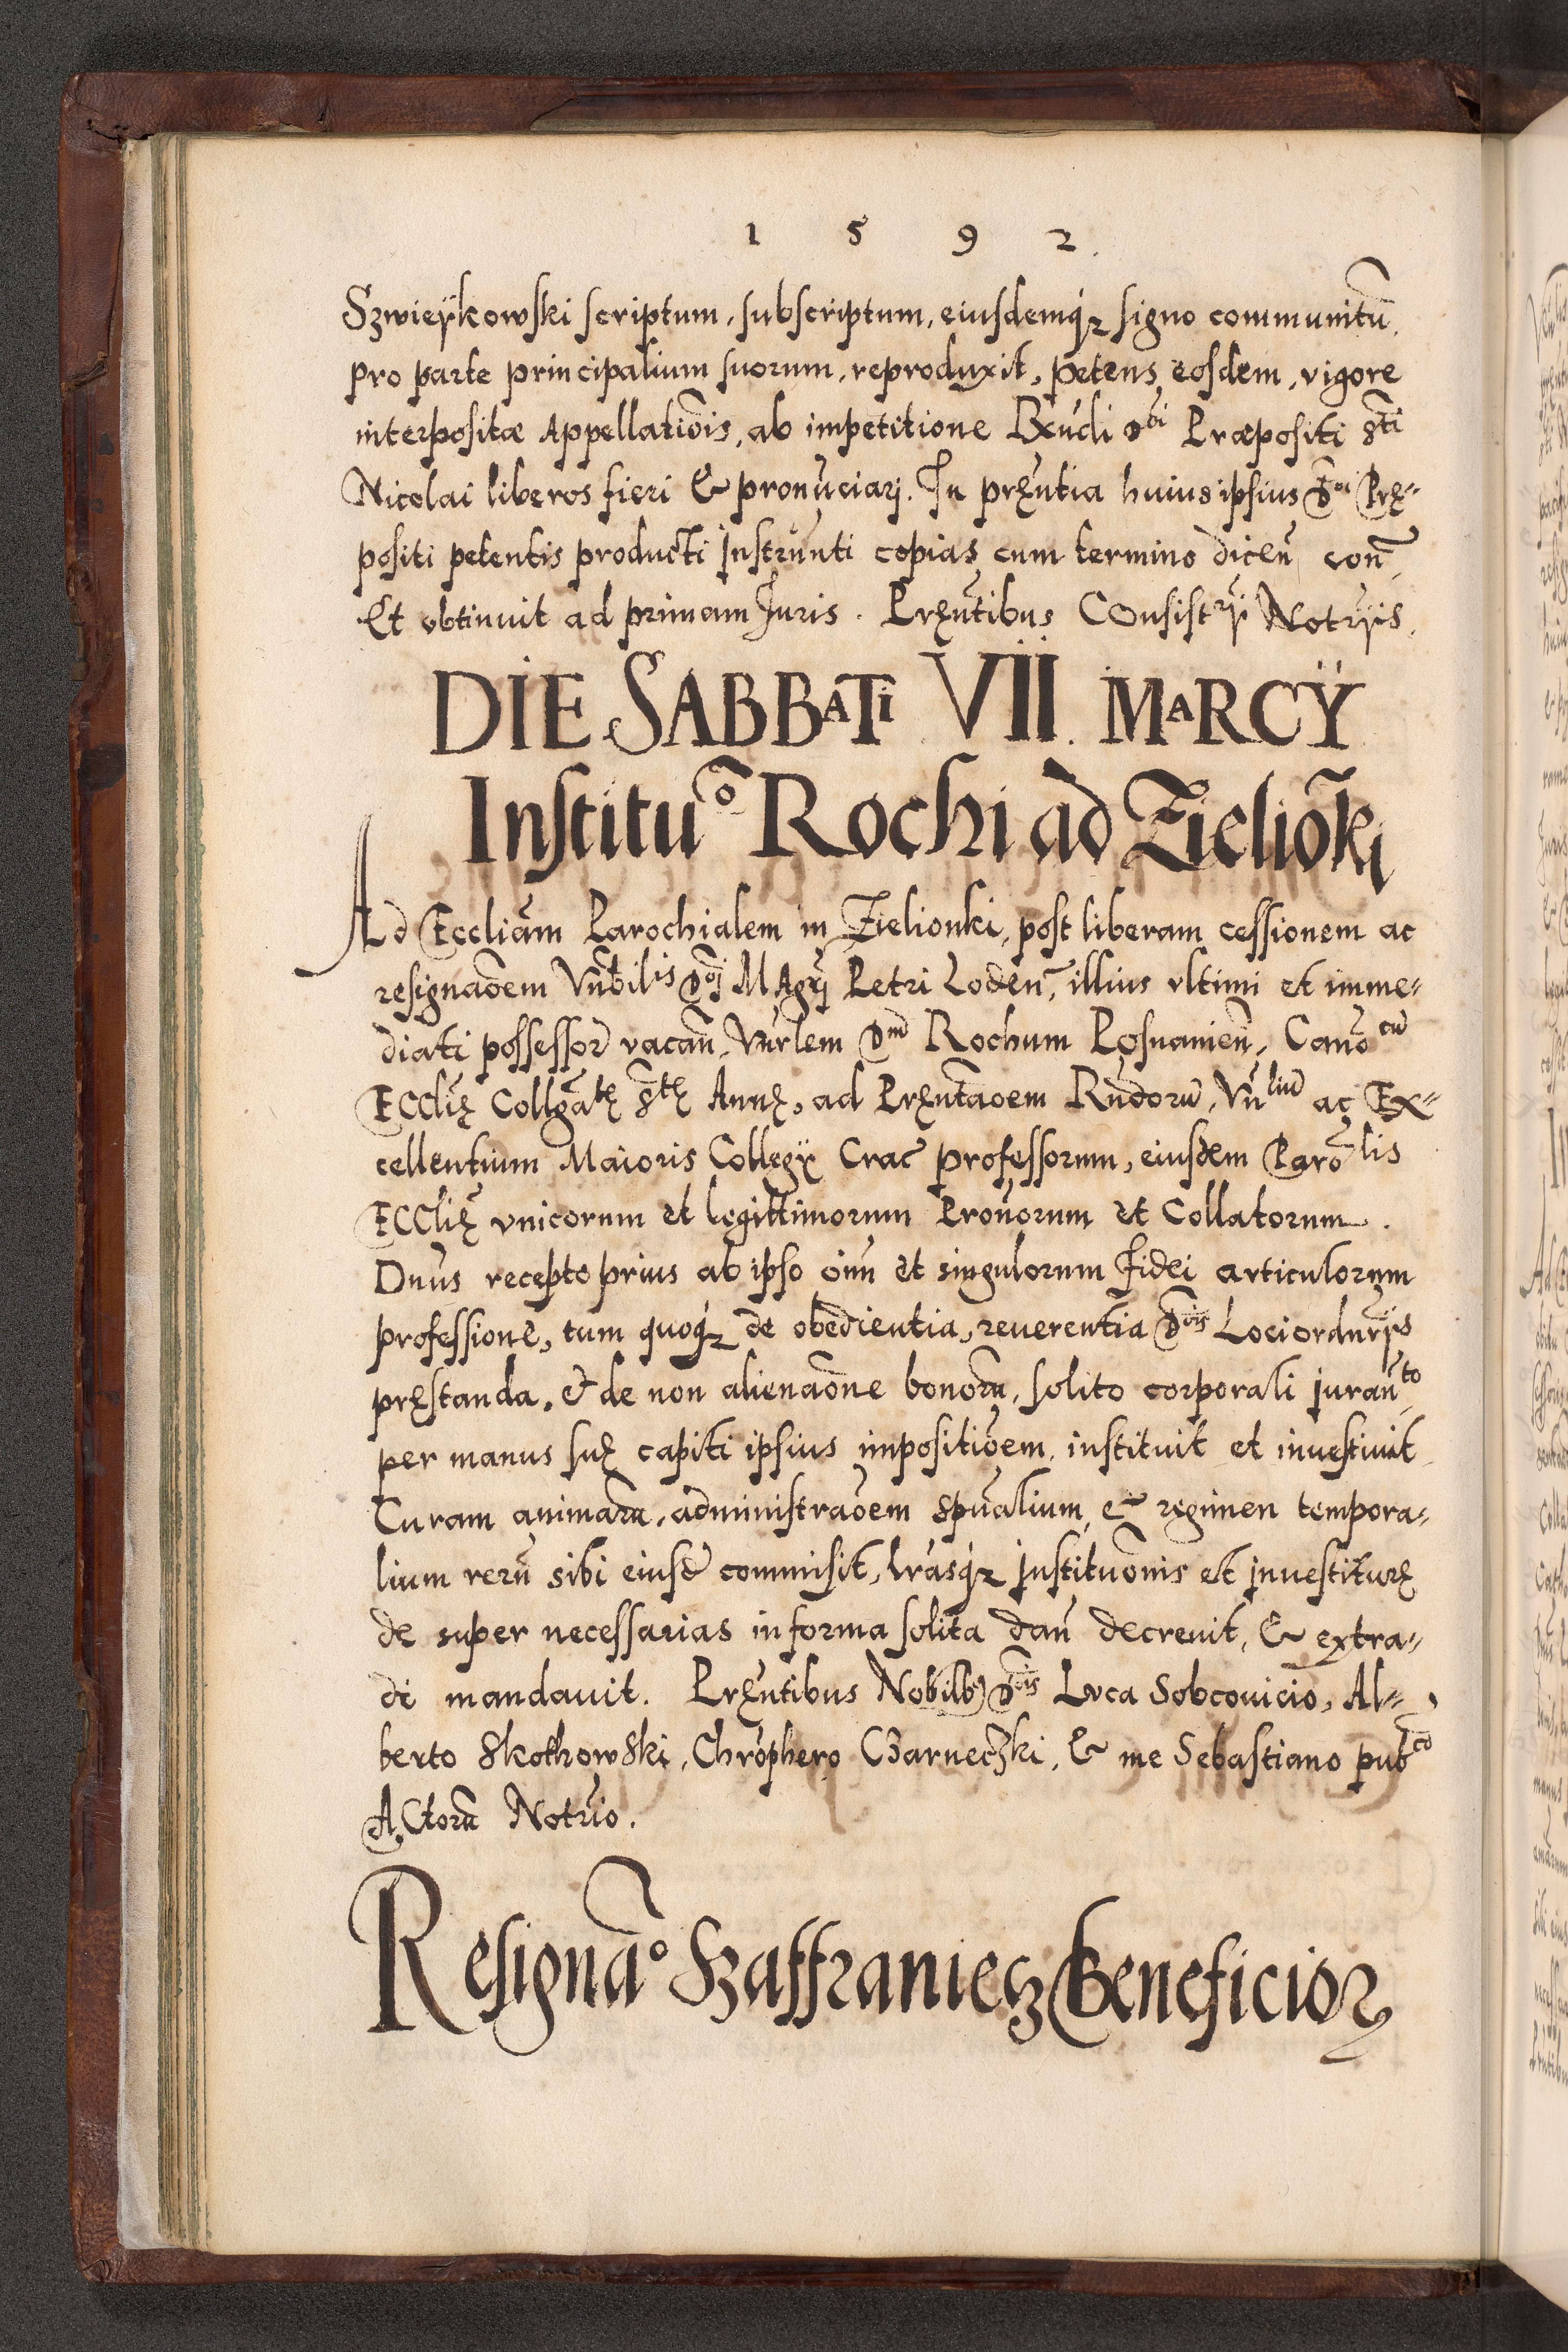 1 5 9 2.
Szwieÿkowski scriptum, subscriptum, eiusdemq́ꝫ signo communitũ.
pro parte principalium suorum, reproduxit, petens eosdem, vigore
interpositæ Appellatiõis, ab impetitione Præpositi Sti
Nicolai liberos fieri & pronũciarj. In pręñtia huius ipsius Dni Prę-
positi petentis producti Instrũnti copias cum termino diceñ coñ.
Et obtinuit ad primam Juris. Pręñtibus Consistrÿ Notrÿis.
DIE SABBATI VII. MARCŸ
Institũo Rochi ad Zieliõki
Ad Ecclĩam Parochialem in Zielionki, post liberam cessionem ac
resignãoem Vñbilis Dnj MAgrj Petri Lodeñ, illius vltimi et imme-
diati possessor̃ vacañ, Vñrlem Dnm Rochum Posnanień, Canocũ
Ecclię Collgãtę Stę Annę, ad Pręñtãoem Rñdorũ, Vñliũ ac Ex-
cellentium Maioris Collegÿ Crac̃ professorum, eiusdem Parõlis
Ecclię vnicorum et legittimorum Prouorum et Collatorum.
Dnus recepto prius ab ipso oĩm et singulorum fidei articulorum
professione, tum quoq́ꝫ de obedientia, reuerentia Dnis Lociordnrÿs
pręstanda, & de non alienãone bonorũ, solito corporali jurañto
per manus suę capiti ipsius impositiõem, instituit et inuestiuit.
Curam animarũ, administrãoem spũalium, & regimen tempora-
lium rerũ sibi eiusd̃ commisit, Lr̃asq́ꝫ Institutiõnis et jnuestiturę
de super necessarias in forma solita dañ decreuit, & extra-
di mandauit. Pręñtibus Nobilbꝫ Dnis Luca Sobcouicio, Al-
berto Skothowski, Chrõphero Czarneczki, & me Sebastiano pubco
Actorũ Notrio.
Resignão Szaffraniecz Beneficioꝝ